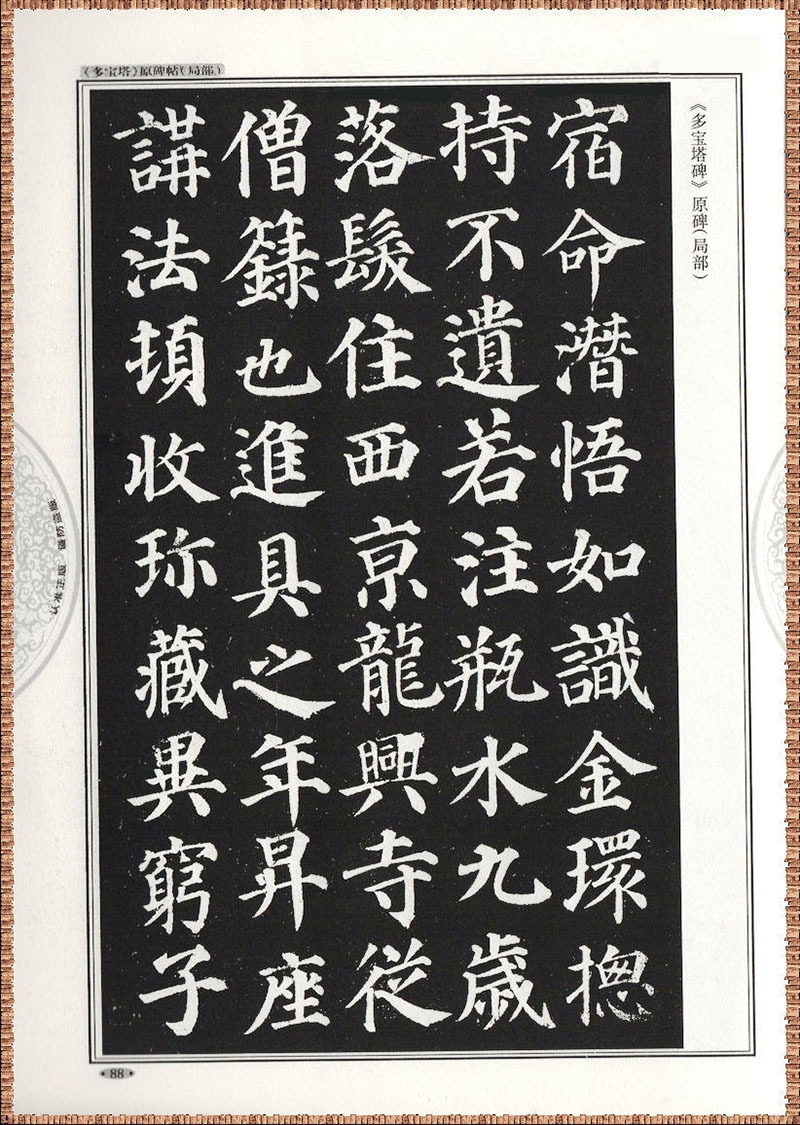 《多宝塔》原碑帖(局部)
《多宝塔碑》原碑(局部)
宿命潛悟如識金環揔
持不遺若注瓶水九歲
落髮住西京龍興寺從
僧籙也進具之年昇座
講法頓收珎藏異窮子
88